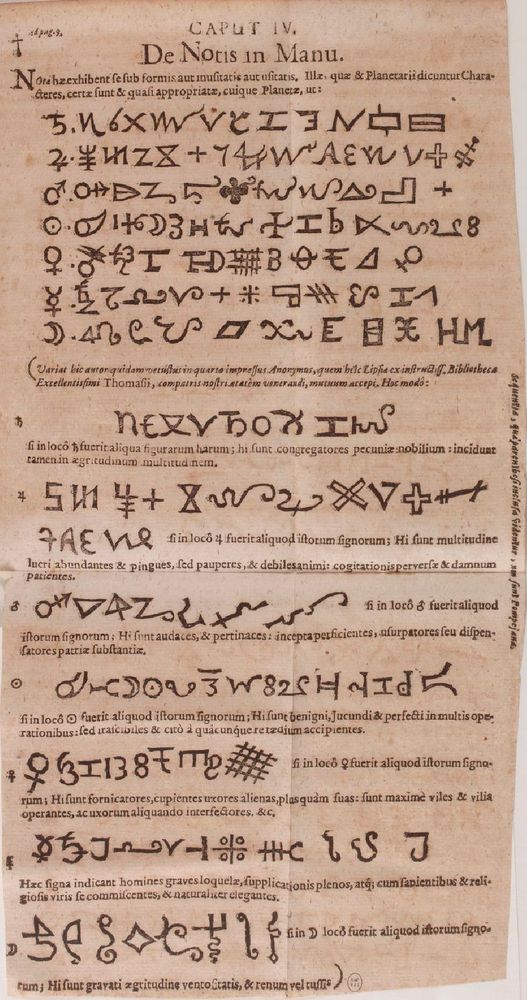 ad pag. 9.
CAPUT IV.
De Notis in Manu.
Notæ hæ exhibent se sub formis aut inusitatis aut usitatis. Illæ, quæ & Planetarii dicuntur Chara-
cteres, certæ sunt & quasi appropriatæ, cuique Planetæ, ut:
♄
♃
♂
☉
♀
☿
☽
(Variat hic autor quidam vetustus in quarto impressus Anonymus, quem hîc Lipsiæ ex instructiss. Bibliotheca
Excellentissimi Thomasii, compatris nostri ætatèm venerandi, mutuum accepi. Hoc modô:
♄
si in locô ♄ fuerit aliqua figurarum harum; hi sunt congregatores pecuniæ nobilium: incidunt
tamen in ægritudinum multitudinem.
♃
si in locô ♃ fuerit aliquod istorum signorum; Hi sunt multitudine
lucri abundantes & pingues, sed pauperes, & debiles animi: cogitationis perversæ & damnum
patientes.
♂
si in locô ♂ fuerit aliquod
istorum signorum; Hi sunt audaces, & pertinaces: incepta perficientes, usurpatores seu dispen-
satores patriæ substantiæ.
☉
si in locô ☉ fuerit aliquod istorum signorum; Hi sunt benigni, Jucundi & perfecti in multis ope-
rationibus: sed irascibiles & citò à quâcunque re tædium accipientes.
♀
si in locô ♀ fuerit aliquod istorum signo-
rum; Hi sunt fornicatores, cupientes uxores alienas, plusquàm suas: sunt maximè viles & vilia
operantes, ac uxorum aliquando interfectores. &c.
☿
Hæc signa indicant homines graves loquelæ, supplicationis plenos, atq; cum sapientibus & reli-
giosis viris se commiscentes, & naturaliter elegantes.
☽
si in ☽ locô fuerit aliquod istorum signo-
rum; Hi sunt gravati ægritudine ventositatis, & renum vel tussis)
Sequentia, quæ parenthesi inclusa videntur, non sunt Pompejana.